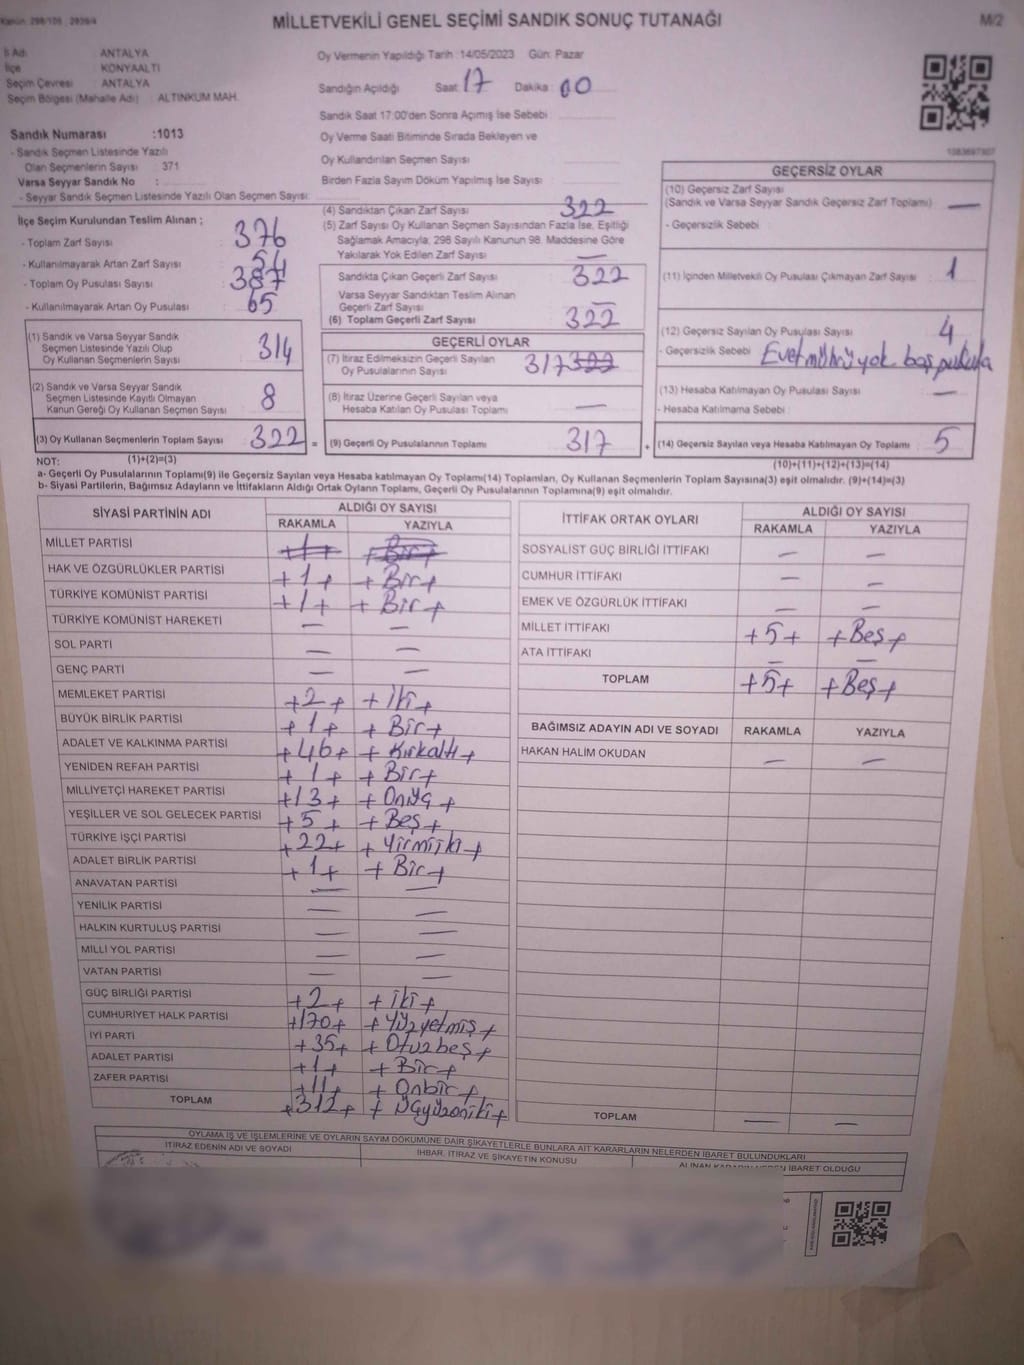 Kanun: 298/105 ; 2839/4
MİLLETVEKİLİ GENEL SEÇİMİ SANDIK SONUÇ TUTANAĞI
M/2
İl Adı : ANTALYA
İlçe : KONYAALTI
Seçim Çevresi : ANTALYA
Seçim Bölgesi (Mahalle Adı) : ALTINKUM MAH.
Sandık Numarası :1013
- Sandık Seçmen Listesinde Yazılı
Olan Seçmenlerin Sayısı : 371
Varsa Seyyar Sandık No :
- Seyyar Sandık Seçmen Listesinde Yazılı Olan Seçmen Sayısı:
Oy Vermenin Yapıldığı Tarih :14/05/2023 Gün: Pazar
Sandığın Açıldığı Saat: 17 Dakika: 00
Sandık Saat 17:00'den Sonra Açımış İse Sebebi :
Oy Verme Saati Bitiminde Sırada Bekleyen ve
Oy Kullandırılan Seçmen Sayısı :
Birden Fazla Sayım Döküm Yapılmış İse Sayısı :
İlçe Seçim Kurulundan Teslim Alınan ;
- Toplam Zarf Sayısı : 376
- Kullanılmayarak Artan Zarf Sayısı : 54
- Toplam Oy Pusulası Sayısı : 387
- Kullanılmayarak Artan Oy Pusulası : 65
(1) Sandık ve Varsa Seyyar Sandık
Seçmen Listesinde Yazılı Olup
Oy Kullanan Seçmenlerin Sayısı : 314
(2) Sandık ve Varsa Seyyar Sandık
Seçmen Listesinde Kayıtlı Olmayan
Kanun Gereği Oy Kullanan Seçmen Sayısı : 8
(3) Oy Kullanan Seçmenlerin Toplam Sayısı : 322
(4) Sandıktan Çıkan Zarf Sayısı : 322
(5) Zarf Sayısı Oy Kullanan Seçmen Sayısından Fazla İse, Eşitliği
Sağlamak Amacıyla, 298 Sayılı Kanunun 98. Maddesine Göre
Yakılarak Yok Edilen Zarf Sayısı : —
Sandıkta Çıkan Geçerli Zarf Sayısı : 322
Varsa Seyyar Sandıktan Teslim Alınan
Geçerli Zarf Sayısı : —
(6) Toplam Geçerli Zarf Sayısı : 322
GEÇERLİ OYLAR
(7) İtiraz Edilmeksizin Geçerli Sayılan
Oy Pusulalarının Sayısı : 317 322
(8) İtiraz Üzerine Geçerli Sayılan veya
Hesaba Katılan Oy Pusulası Toplamı : —
= (9) Geçerli Oy Pusulalarının Toplamı : 317
GEÇERSİZ OYLAR
(10) Geçersiz Zarf Sayısı
(Sandık ve Varsa Seyyar Sandık Geçersiz Zarf Toplamı) : —
- Geçersizlik Sebebi :
(11) İçinden Milletvekili Oy Pusulası Çıkmayan Zarf Sayısı : 1
(12) Geçersiz Sayılan Oy Pusulası Sayısı : 4
- Geçersizlik Sebebi : Evet mührü yok. boş pusula
(13) Hesaba Katılmayan Oy Pusulası Sayısı : —
- Hesaba Katılmama Sebebi :
+ (14) Geçersiz Sayılan veya Hesaba Katılmayan Oy Toplamı : 5
NOT: (1)+(2)=(3)
(10)+(11)+(12)+(13)=(14)
a- Geçerli Oy Pusulalarının Toplamı(9) ile Geçersiz Sayılan veya Hesaba katılmayan Oy Toplamı(14) Toplamları, Oy Kullanan Seçmenlerin Toplam Sayısına(3) eşit olmalıdır. (9)+(14)=(3)
b- Siyasi Partilerin, Bağımsız Adayların ve İttifakların Aldığı Ortak Oyların Toplamı, Geçerli Oy Pusulalarının Toplamına(9) eşit olmalıdır.
SİYASİ PARTİNİN ADI ALDIĞI OY SAYISI
RAKAMLA YAZIYLA
MİLLET PARTİSİ +1+ +Bir+
HAK VE ÖZGÜRLÜKLER PARTİSİ +1+ +Bir+
TÜRKİYE KOMÜNİST PARTİSİ +1+ +Bir+
TÜRKİYE KOMÜNİST HAREKETİ — —
SOL PARTİ — —
GENÇ PARTİ — —
MEMLEKET PARTİSİ +2+ +İki+
BÜYÜK BİRLİK PARTİSİ +1+ +Bir+
ADALET VE KALKINMA PARTİSİ +46+ +Kırkaltı+
YENİDEN REFAH PARTİSİ +1+ +Bir+
MİLLİYETÇİ HAREKET PARTİSİ +13+ +Onüç+
YEŞİLLER VE SOL GELECEK PARTİSİ +5+ +Beş+
TÜRKİYE İŞÇİ PARTİSİ +22+ +Yirmiiki+
ADALET BİRLİK PARTİSİ +1+ +Bir+
ANAVATAN PARTİSİ — —
YENİLİK PARTİSİ — —
HALKIN KURTULUŞ PARTİSİ — —
MİLLİ YOL PARTİSİ — —
VATAN PARTİSİ — —
GÜÇ BİRLİĞİ PARTİSİ +2+ +İki+
CUMHURİYET HALK PARTİSİ +170+ +Yüzyetmiş+
İYİ PARTİ +35+ +Otuzbeş+
ADALET PARTİSİ +1+ +Bir+
ZAFER PARTİSİ +11+ +Onbir+
TOPLAM +312+ +Üçyüzoniki+
İTTİFAK ORTAK OYLARI ALDIĞI OY SAYISI
RAKAMLA YAZIYLA
SOSYALİST GÜÇ BİRLİĞİ İTTİFAKI — —
CUMHUR İTTİFAKI — —
EMEK VE ÖZGÜRLÜK İTTİFAKI — —
MİLLET İTTİFAKI +5+ +Beş+
ATA İTTİFAKI — —
TOPLAM +5+ +Beş+
BAĞIMSIZ ADAYIN ADI VE SOYADI RAKAMLA YAZIYLA
HAKAN HALİM OKUDAN — —
TOPLAM — —
OYLAMA İŞ VE İŞLEMLERİNE VE OYLARIN SAYIM DÖKÜMÜNE DAİR ŞİKAYETLERLE BUNLARA AİT KARARLARIN NELERDEN İBARET BULUNDUKLARI
İTİRAZ EDENİN ADI VE SOYADI İHBAR, İTİRAZ VE ŞİKAYETİN KONUSU ALINAN KARARIN NEDEN İBARET OLDUĞU